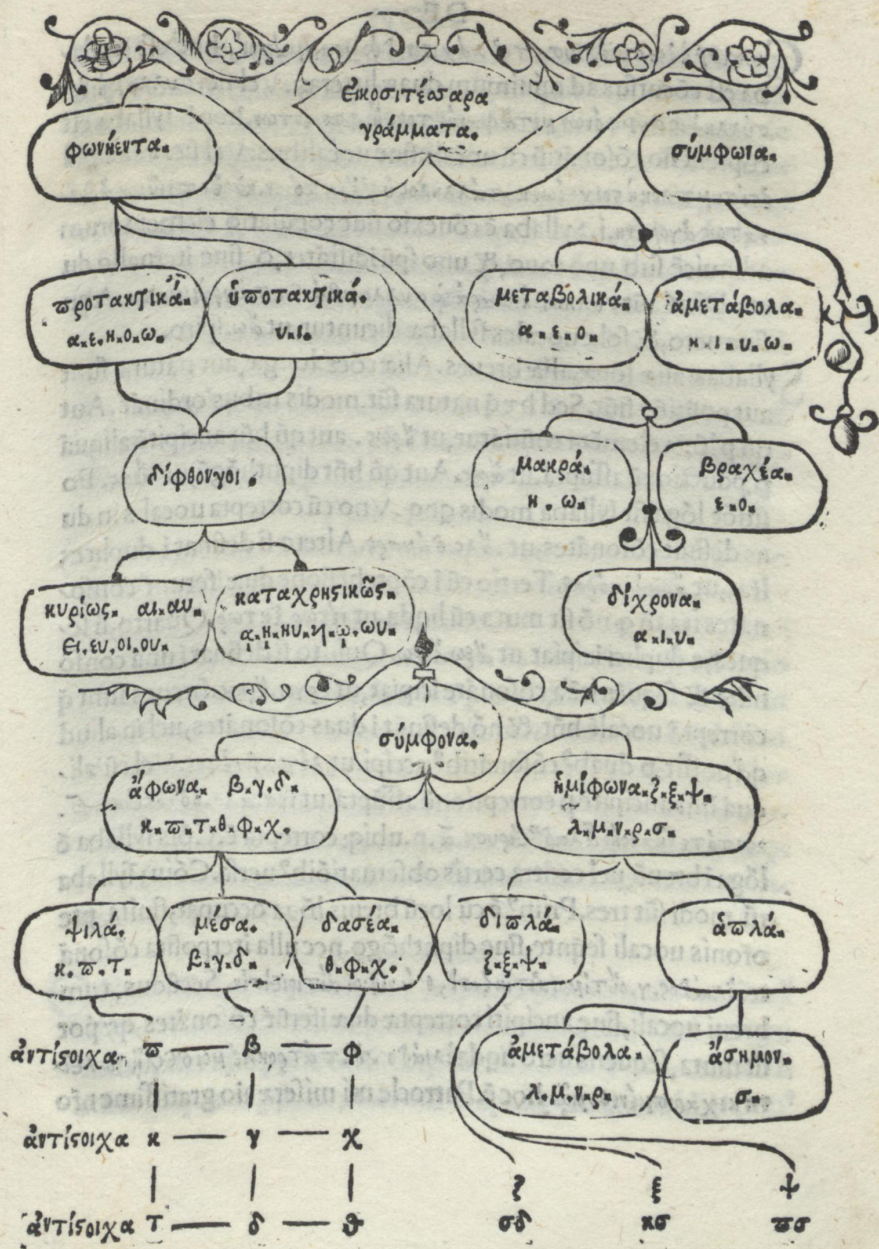 Εικοσιτέσσαρα
γράμματα.
φωνήεντα.
σύμφωνα.
προτακτικά.
α.ε.η.ο.ω.
ὑποτακτικά.
υ.ι.
μεταβολικά.
α.ε.ο.
ἀμετάβολα.
η.ι.υ.ω.
δίφθογγοι.
μακρά.
η.ω.
βραχέα.
ε.ο.
κυρίως. αι.αυ.
ει.ευ.οι.ου.
καταχρηστικῶς.
ᾳ.ῃ.ηυ.ῃ.ῳ.ωυ.
δίχρονα.
α.ι.υ.
σύμφονα.
ἄφωνα. β.γ.δ.
κ.π.τ.θ.φ.χ.
ἡμίφωνα.ζ.ξ.ψ.
λ.μ.ν.ρ.σ.
ψιλά.
κ.π.τ.
μέσα.
β.γ.δ.
δασέα.
θ.φ.χ.
διπλά.
ζ.ξ.ψ.
ἁπλά.
ἀμετάβολα.
λ.μ.ν.ρ.
ἄσημον.
σ.
ἀντίστοιχα. π β φ
ἀντίστοιχα κ γ χ
ζ ξ ψ
ἀντίστοιχα τ δ θ σδ κσ πσ